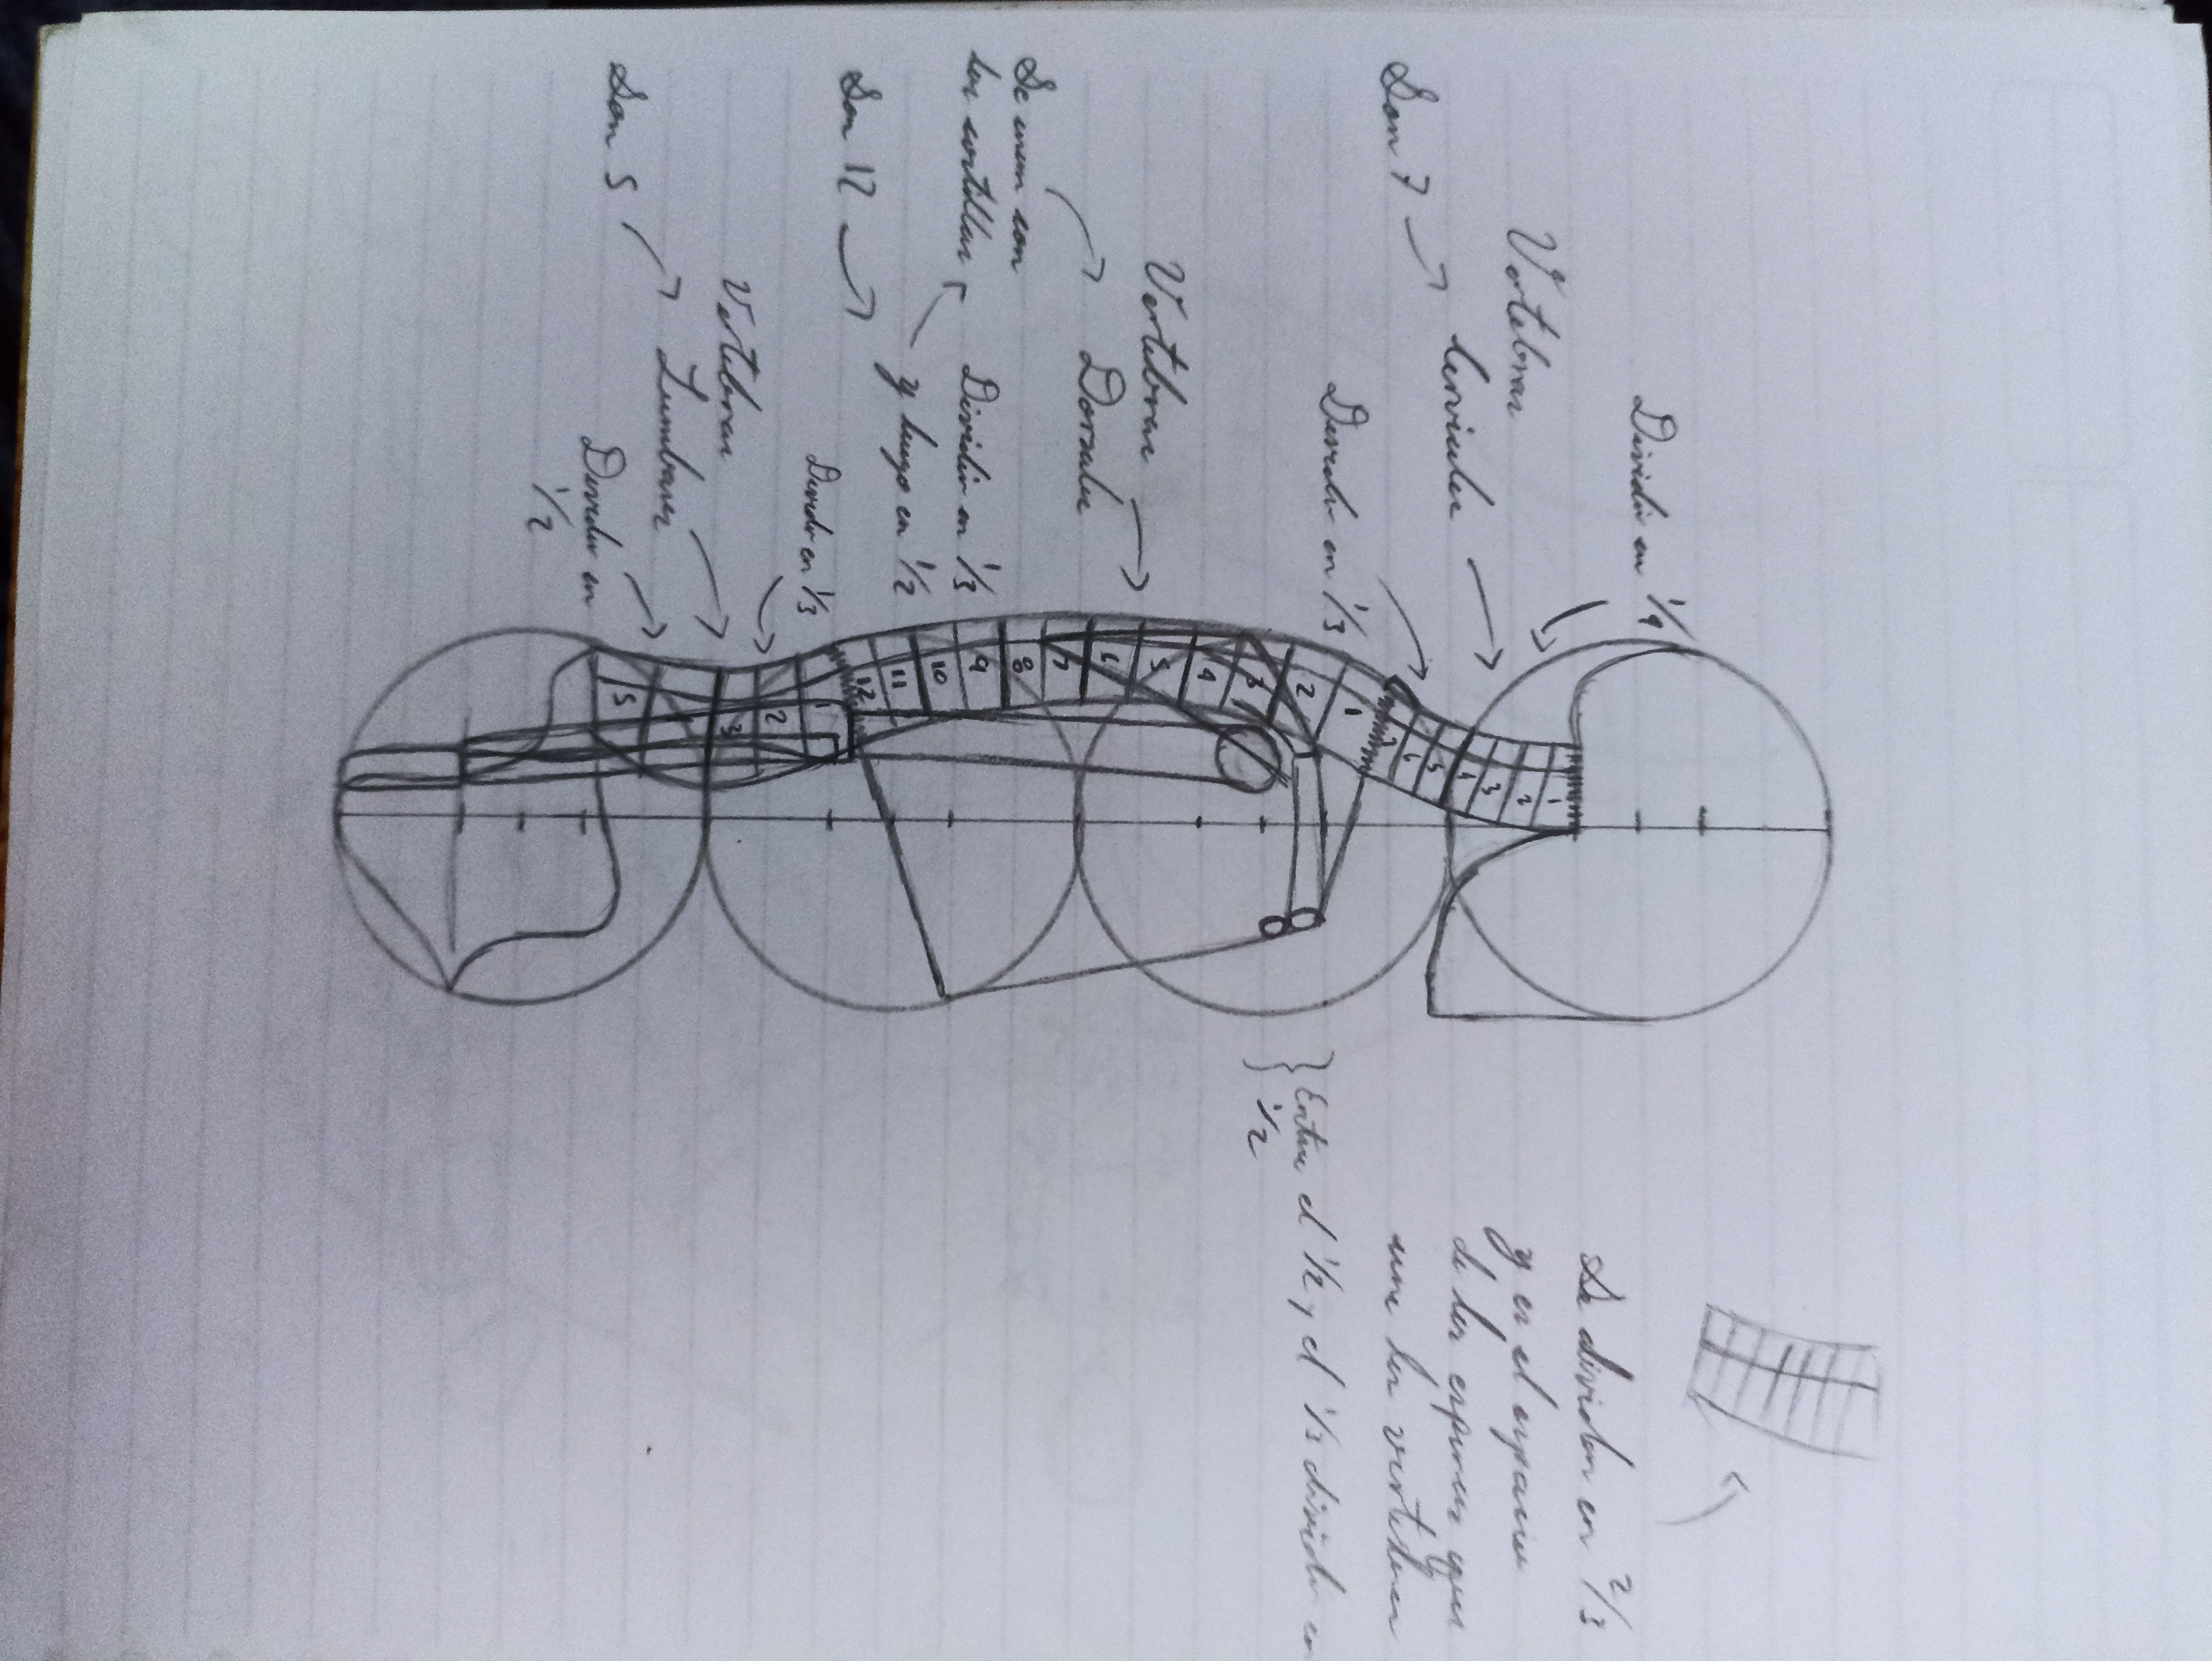 Dividir en 1/4
Vertebras
Son 7
Cervicales
Dividir en 1/3
Vertebras
Dorsales
Se unen con
las costillas
Dividir en 1/3
y luego en 1/2
Son 12
Dividir en 1/3
Vertebras
Lumbares
Son 5
Dividir en
1/2
1
2
3
4
5
6
7
1
2
3
4
5
6
7
8
9
10
11
12
1
2
3
5
Se dividen en 2/3
y es el espacio
de las espinas que
une las vertebras
Entre el 1/2 y el 1/3 dividir en
1/2